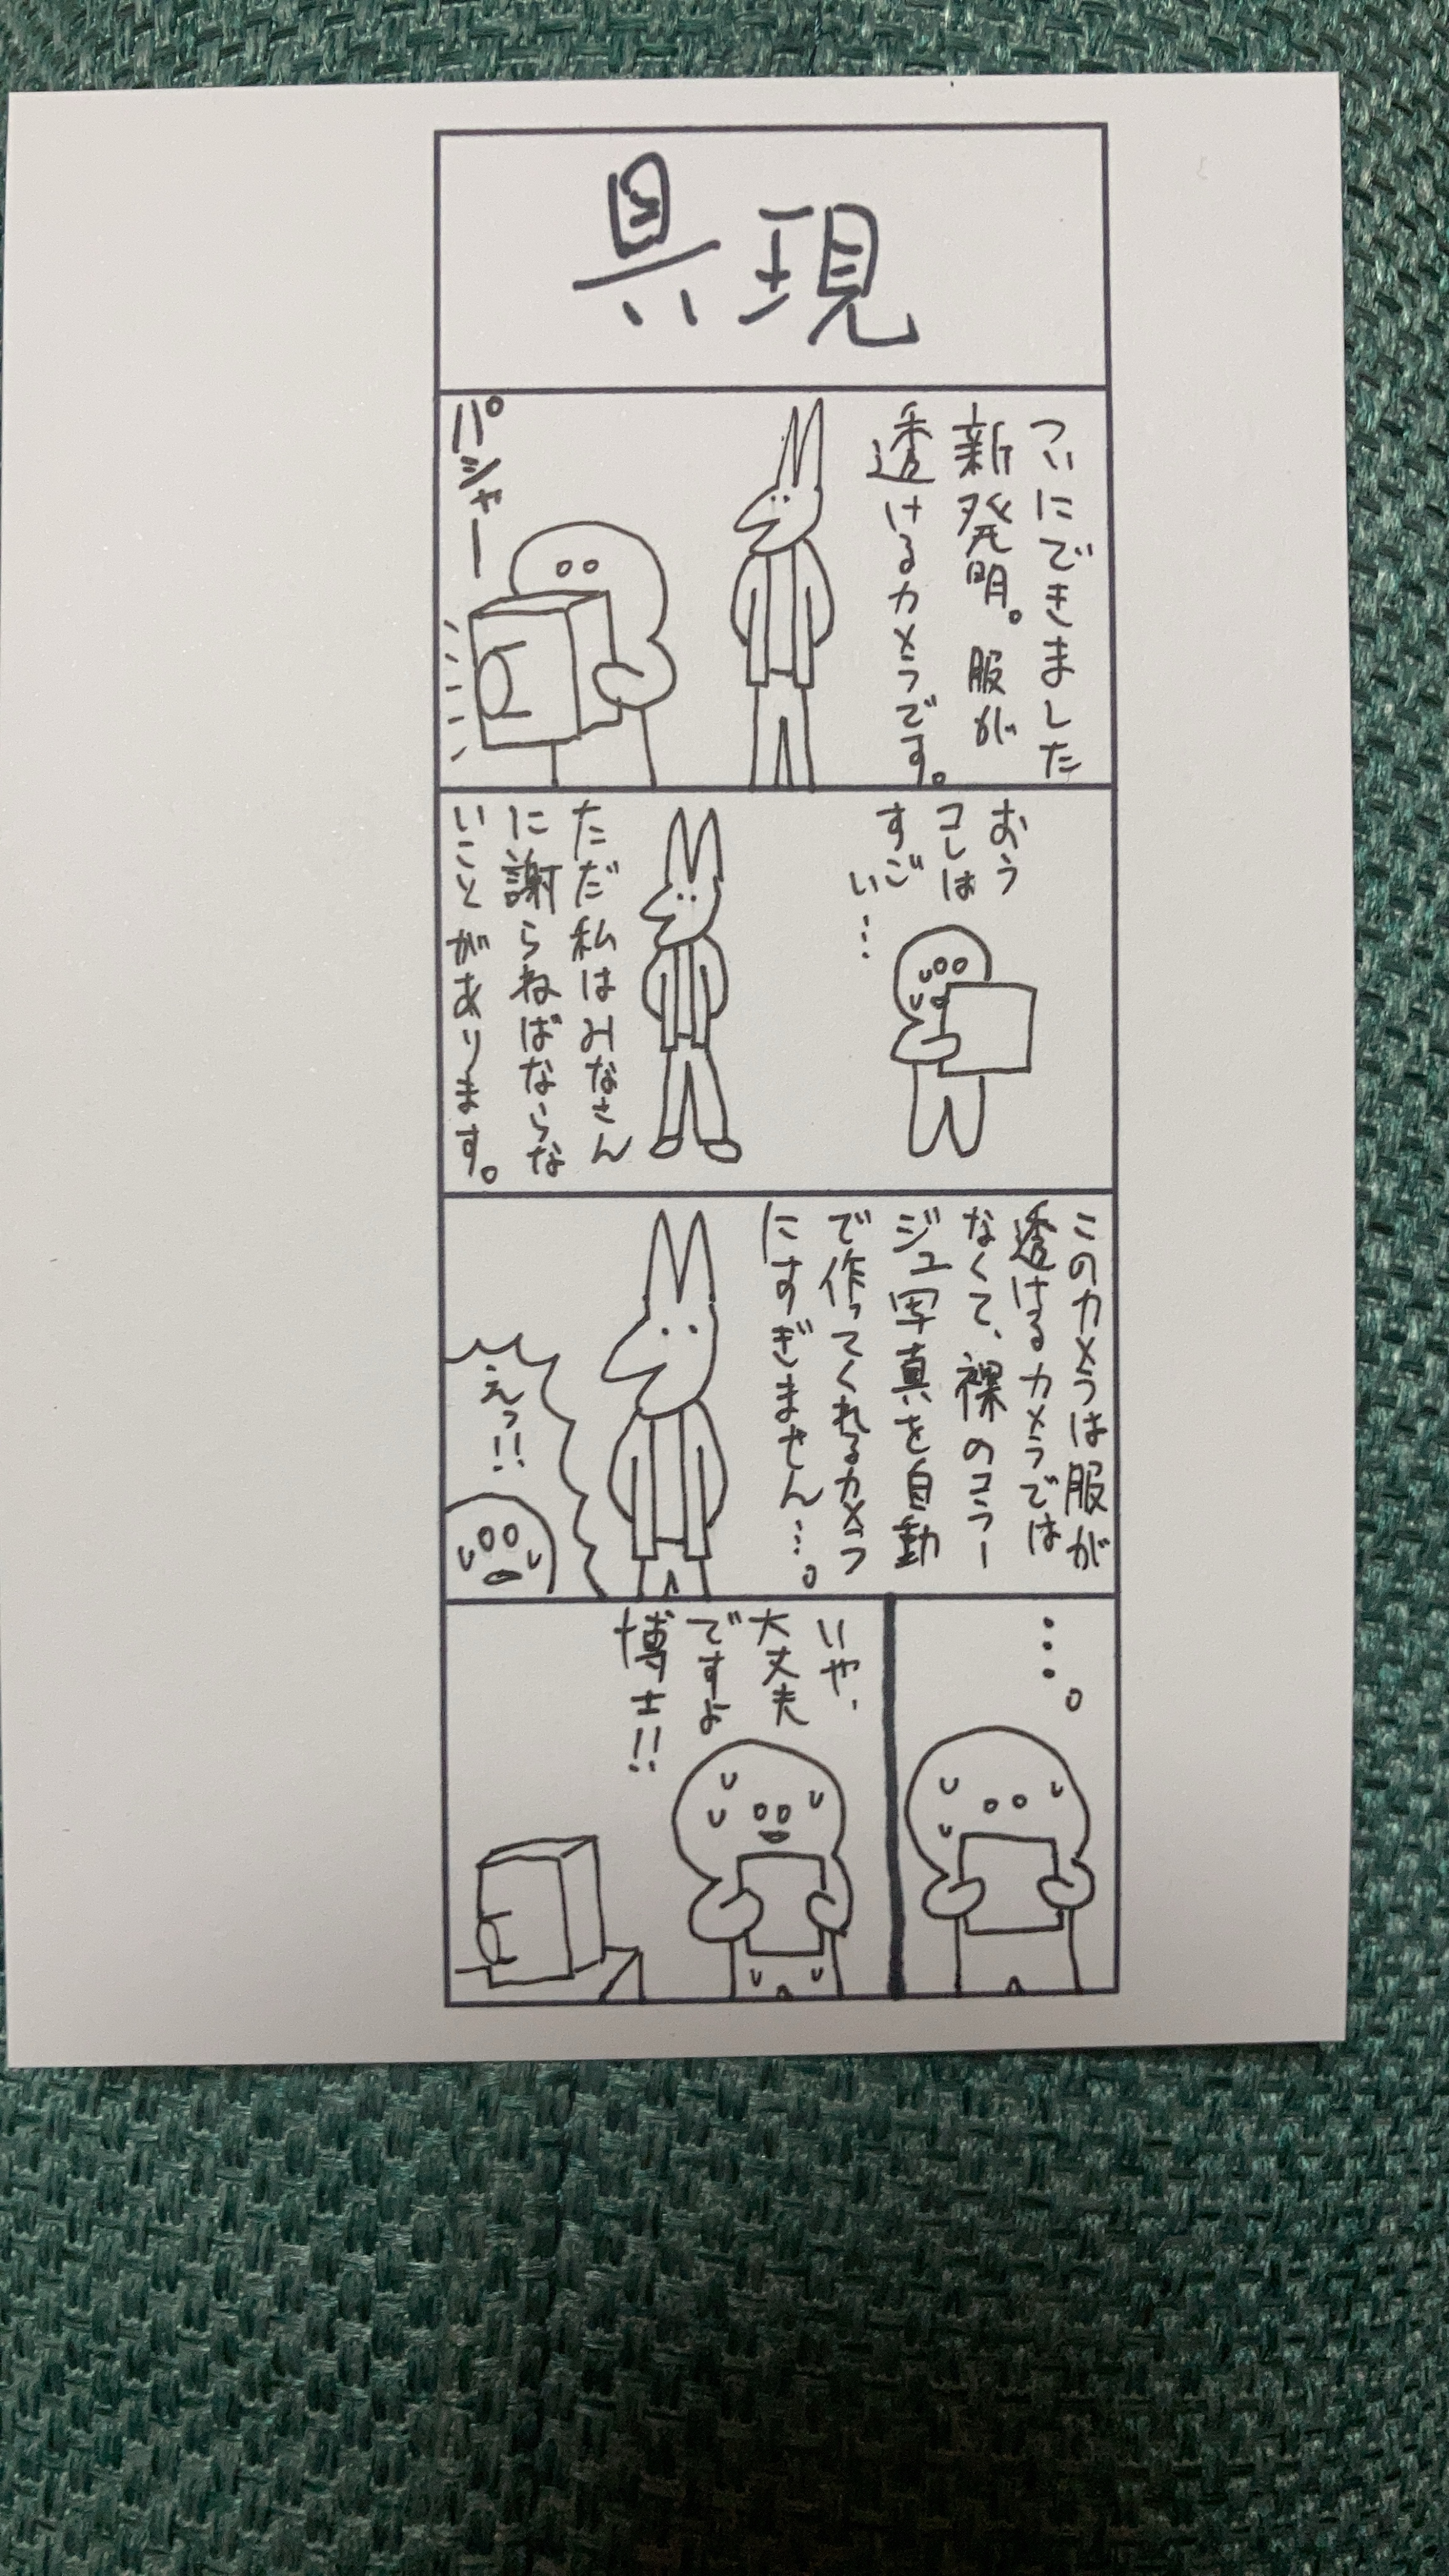 具現
ついにできました
新発明。服が
透けるカメラです。
パシャー
おう
コレは
すご
い…
ただ私はみなさん
に謝らねばならな
いことがあります。
このカメラは服が
透けるカメラでは
なくて、裸のコラー
ジュ写真を自動
で作ってくれるカメラ
にすぎません…。
えっ!!
…。
いや、
大丈夫
ですよ
博士!!